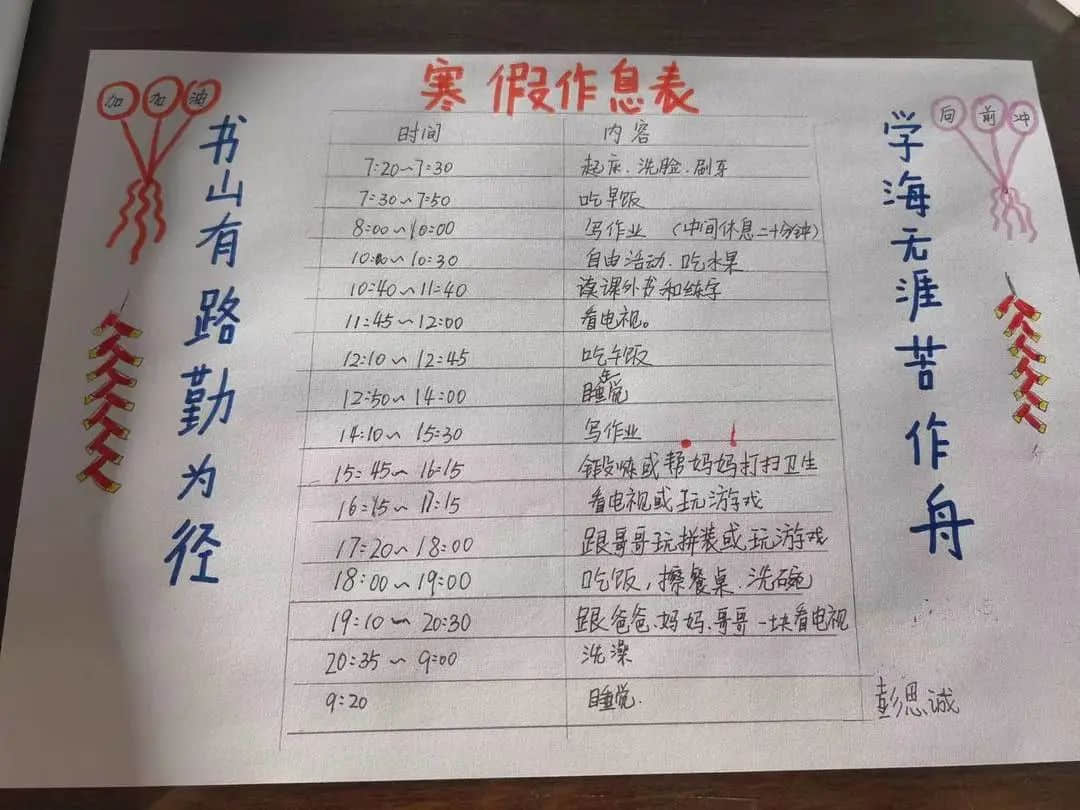 寒假作息表
加加油
向前冲
书山有路勤为径
学海无涯苦作舟
时间 内容
7:20~7:30 起床.洗脸.刷牙
7:30~7:50 吃早饭
8:00~10:00 写作业 (中间休息二十分钟)
10:00~10:30 自由活动.吃水果
10:40~11:40 读课外书和练字
11:45~12:00 看电视。
12:10~12:45 吃午饭
12:50~14:00 睡午觉
14:10~15:30 写作业
15:45~16:15 锻炼或帮妈妈打扫卫生
16:15~17:15 看电视或玩游戏
17:20~18:00 跟哥哥玩拼装或玩游戏
18:00~19:00 吃饭,擦餐桌.洗碗
19:10~20:30 跟爸爸.妈妈.哥哥一块看电视
20:35~9:00 洗澡
9:20 睡觉.
彭思诚